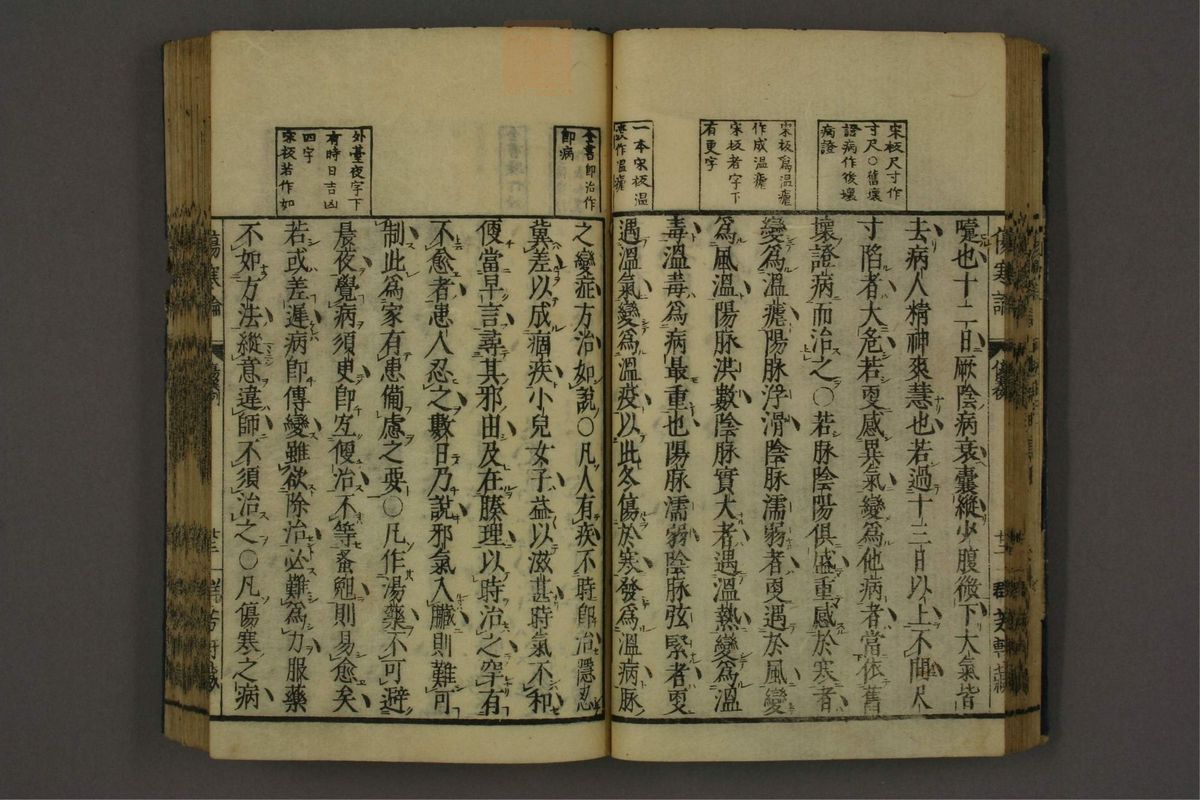 宋板尺寸作
寸尺〇舊壞
證病作後壞
病證
宋板爲溫瘧
作成溫瘧
宋板者字下
有更字
一本宋板溫
瘧作溫瘧
囊也十二日厥陰病衰囊縱少腹微下大氣皆
去病人精神爽慧也若過十三日以上不間尺
寸陷者大危若更感異氣變爲他病者當依舊
壞證病而治之〇若脉陰陽俱盛重感於寒者
變爲溫瘧陽脉浮滑陰脉濡弱者更遇於風變
爲風溫陽脉洪數陰脉實大者遇溫熱變爲溫
毒溫毒爲病最重也陽脉濡弱陰脉弦緊者更
遇溫氣變爲溫疫以此冬傷於寒發爲溫病脉
全書卽治作
卽病
外臺夜字下
有時日吉凶
四字
宋板若作如
之變症方治如說〇凡人有疾不時卽治隱忍
冀差以成痼疾小兒女子益以滋甚時氣不和
便當早言尋其邪由及在腠理以時治之罕有
不愈者患人忍之數日乃說邪氣入臟則難可
制此爲家有患備慮之要〇凡作湯藥不可避
晨夜覺病須臾卽宜便治不等蚤晚則易愈矣
若或差遲病卽傳變雖欲除治必難爲力服藥
不如方法縱意違師不須治之〇凡傷寒之病
傷寒論
傷寒論